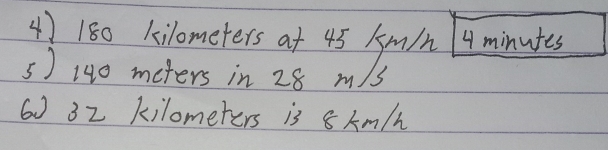 4) 180 kilometers at 45 km/h 4 minutes
5) 140 meters in 28 m/s
6) 32 kilometers is 8 km/h